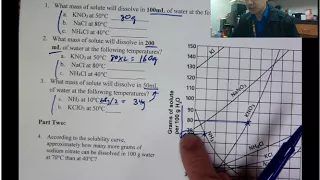 1. What mass of solute will dissolve in 100mL of water at the
a. KNO₃ at 50°C 80g
b. NaCl at 80°C
c. NH₄Cl at 40°C
2. What mass of solute will dissolve in 200
mL of water at the following temperatures?
a. KNO₃ at 50°C 80×2 = 160g
b. NaCl at 80°C
c. NH₄Cl at 40°C
3. What mass of solute will dissolve in 50mL
of water at the following temperatures?
a. NH₃ at 10°C /2 = 34g
c. KClO₃ at 50°C
Part Two:
4. According to the solubility curve,
approximately how many more grams of
sodium nitrate can be dissolved in 100 g water
at 70°C than at 40°C?
Grams of solute
per 100 g H₂O
150
140
130
120
110
100
90
80
70
KI
NaNO₃
KNO₃